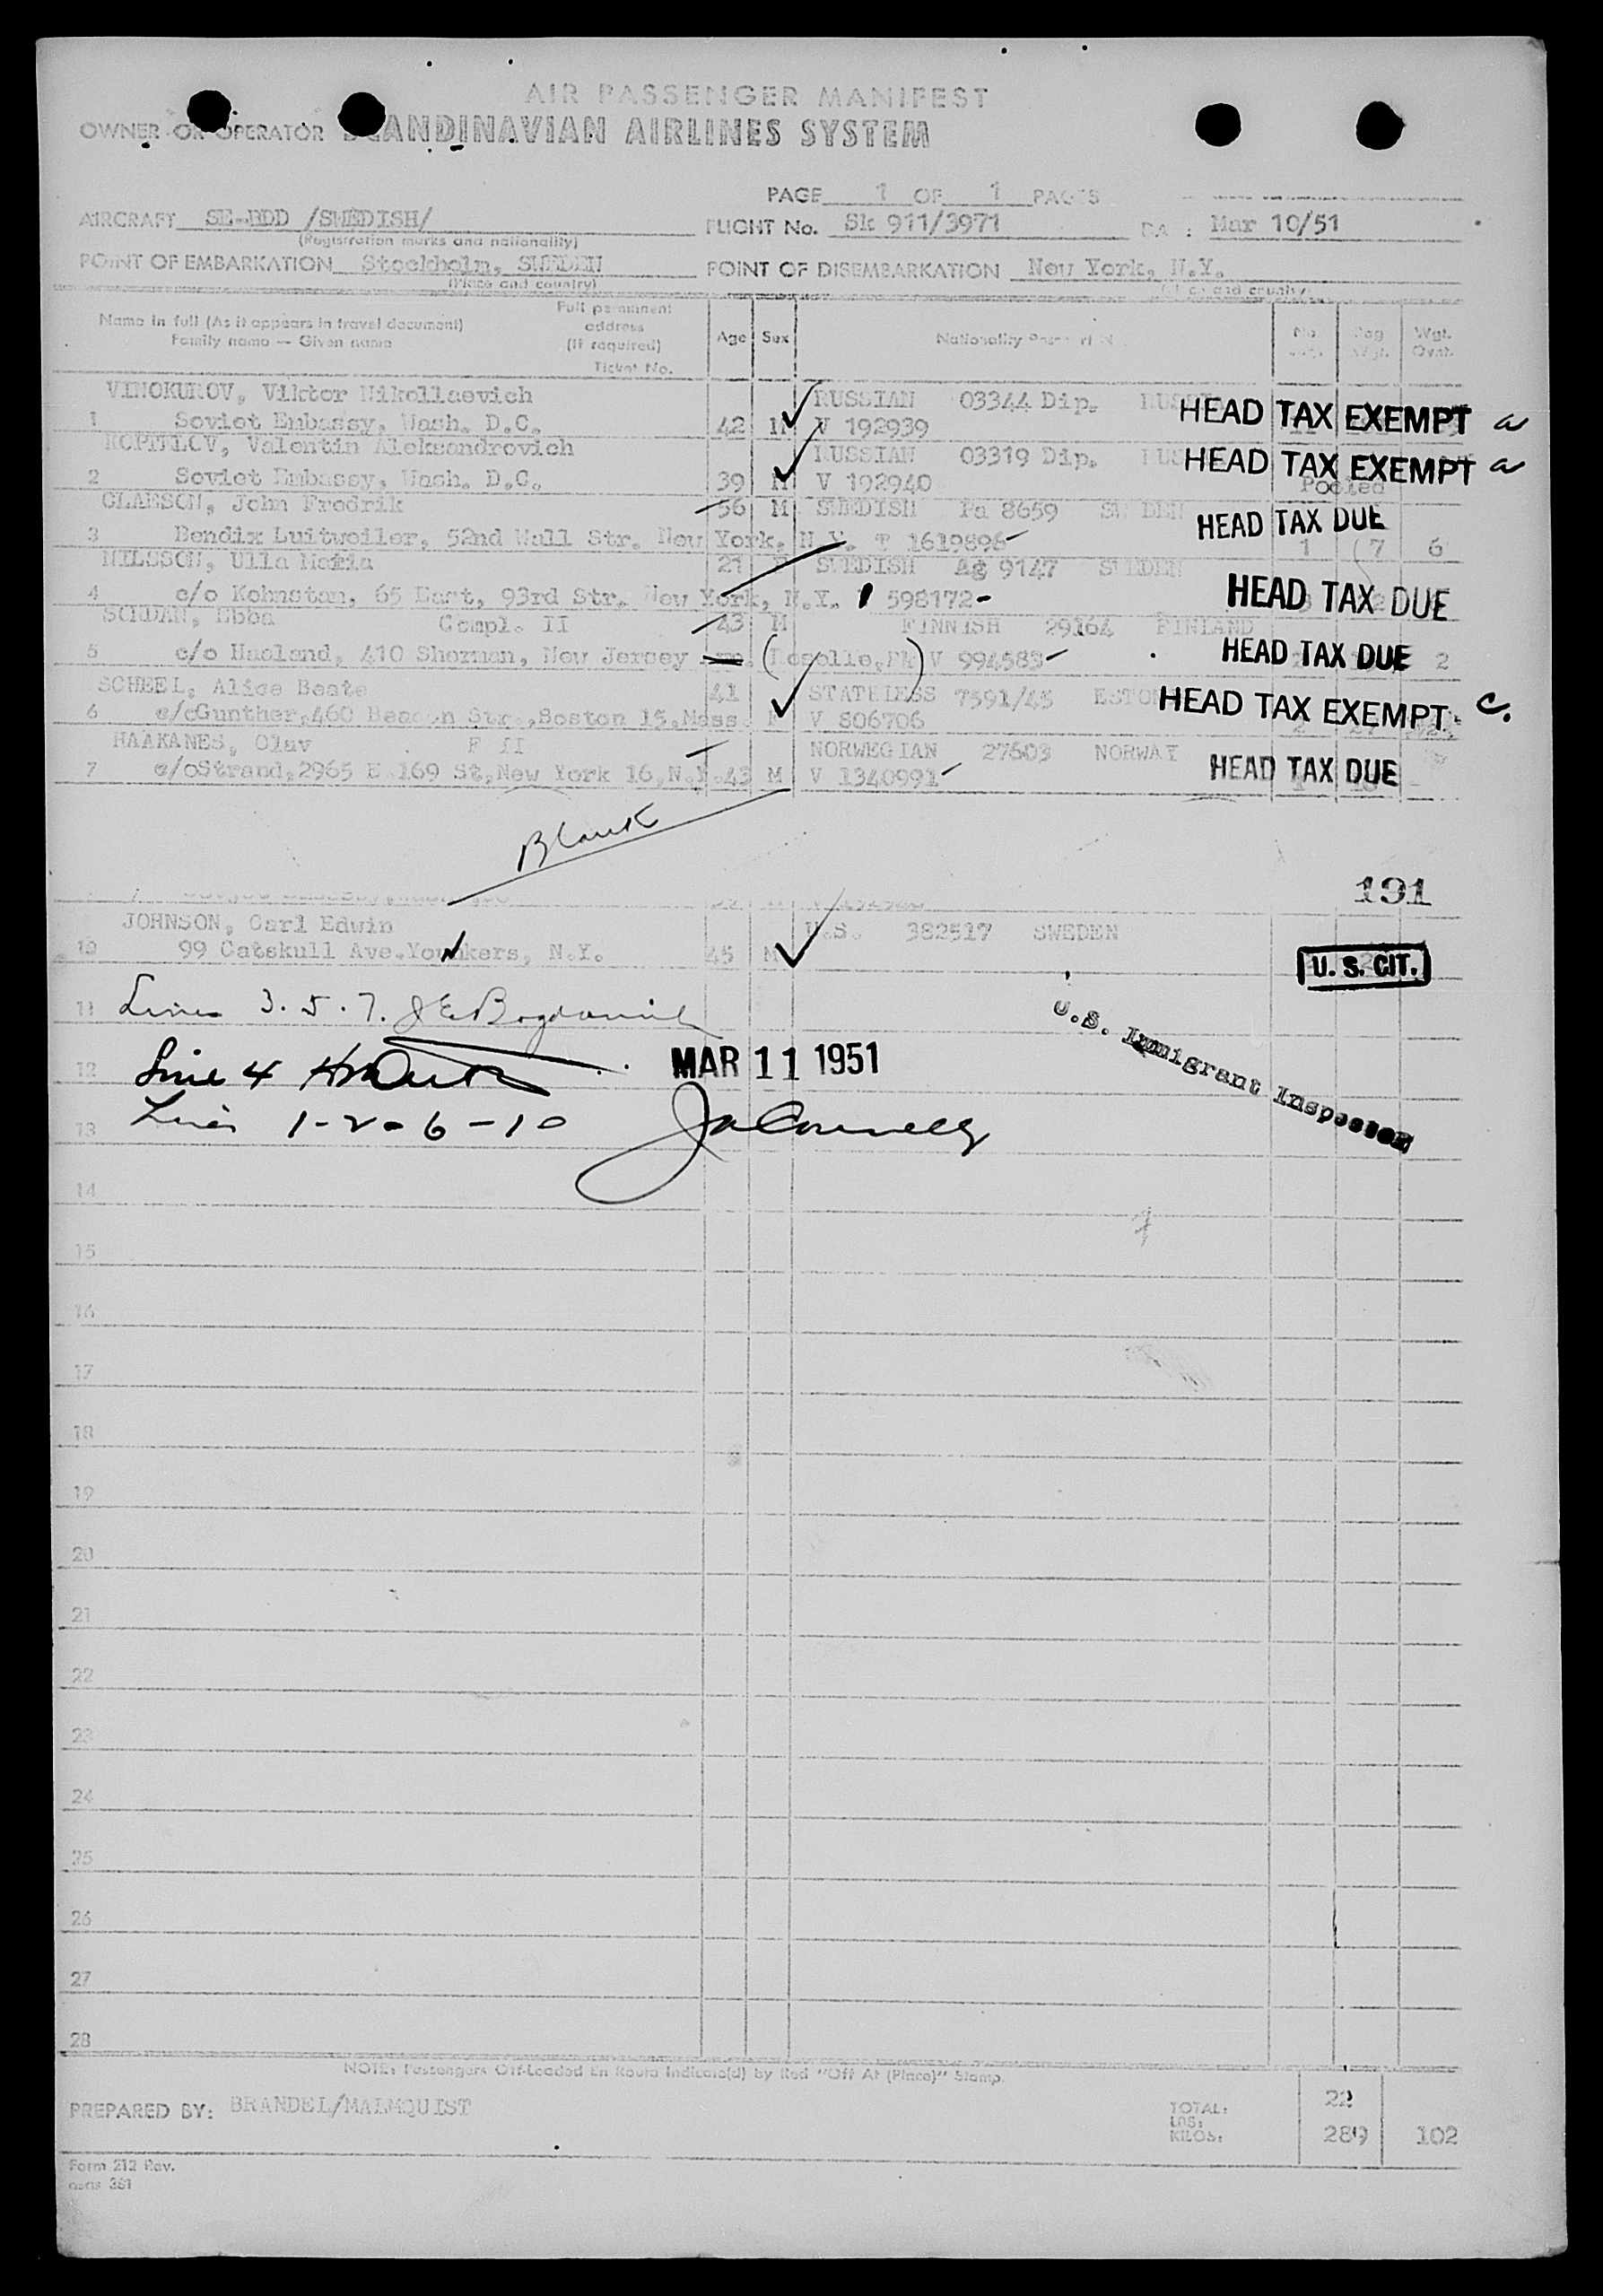 AIR PASSENGER MANIFEST
OWNER OR OPERATOR SCANDINAVIAN AIRLINES SYSTEM
PAGE 1 OF 1 PAGES
AIRCRAFT SE-BDD /SWEDISH/ FLIGHT No. Sk 911/3971 Mar 10/51
(Registration marks and nationality)
POINT OF EMBARKATION Stockholm, SWEDEN POINT OF DISEMBARKATION New York, N.Y.
(Place and country)
Name in full (As it appears in travel document)
Family name — Given name
Full permanent
address
(if required)
Ticket No.
Age Sex Nationality
Wgt.
VINOKUROV, Viktor Nikollaevich RUSSIAN 03344 Dip.
1 Soviet Embassy, Wash. D.C. 42 M V 192939 HEAD TAX EXEMPT a
KOPYTLOV, Valentin Aleksandrovich RUSSIAN 03319 Dip.
2 Soviet Embassy, Wash. D.C. 39 M V 192940 HEAD TAX EXEMPT a
Pooled
CLAESON, John Fredrik 56 M SWEDISH Pa 8659 SWEDEN
3 Bendix Luitweiler, 52nd Wall Str. New York, N.Y. T 1619896 HEAD TAX DUE 1 17 6
NILSSON, Ulla Maria 21 SWEDISH Ag 9147 SWEDEN
4 c/o Kohnstam, 65 East, 93rd Str. New York, N.Y. 598172 HEAD TAX DUE
Ebba Compl. II 43 M FINNISH 29164 FINLAND
5 c/o Hacland, 410 Sherman, New Jersey V 994583 HEAD TAX DUE 2
SCHEEL, Alice Beate 41 STATELESS 7591/45
6 c/oGunther,460 Beacon Str.,Boston 15,Mass. F V 806706 HEAD TAX EXEMPT. c.
HAAKANES, Olav F II NORWEGIAN 27603 NORWAY
7 c/oStrand,2965 E 169 St,New York 16,N.Y. 43 M V 1340991 HEAD TAX DUE
Blank
191
JOHNSON, Carl Edwin U.S. 382517 SWEDEN
10 99 Catskull Ave.Yonkers, N.Y. 45 M U. S. CIT.
11 Lines 3. 5. 7.
U.S. Immigrant Inspector
12 Line 4 MAR 11 1951
13 Lines 1-2-6-10
14
15
16
17
18
19
20
21
22
23
24
25
26
27
28
NOTE: Passengers Off-Loaded En Route Indicate(d) by Red "Off At (Place)" Stamp.
PREPARED BY: BRANDEL/MALMQUIST
TOTAL: 22
LBS:
KILOS: 289 102
Form 212 Rev.